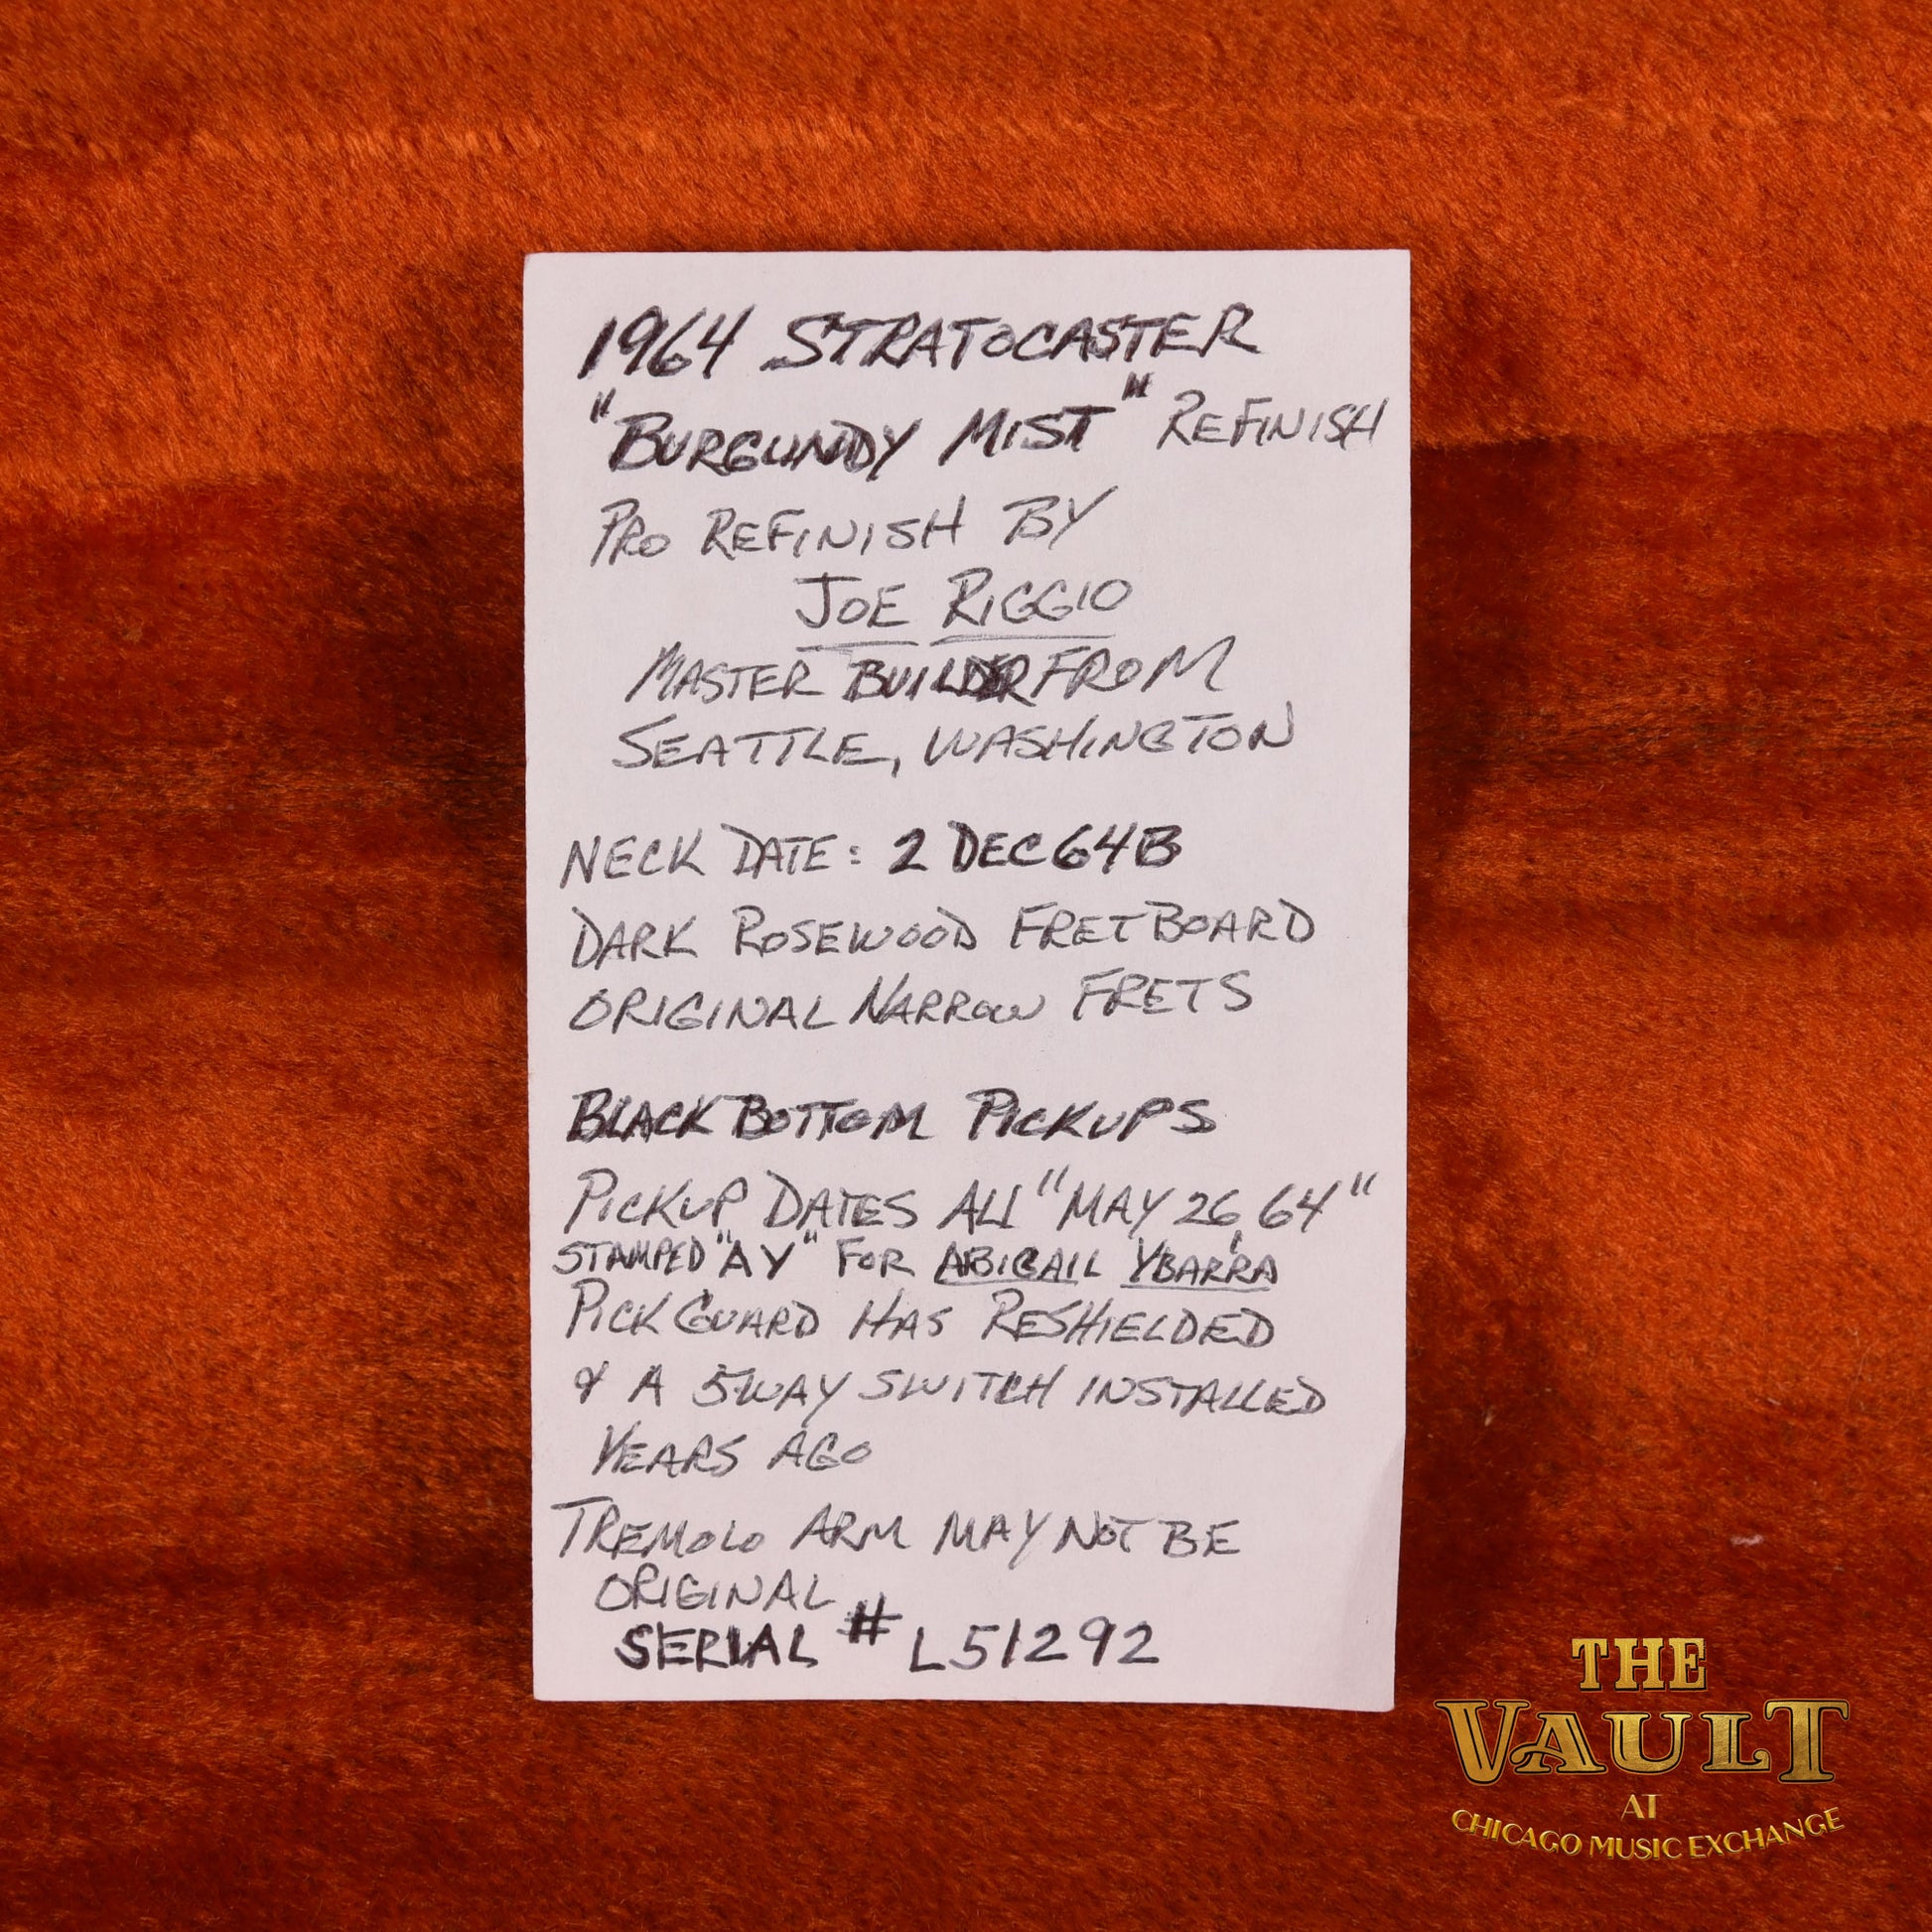 1964 STRATOCASTER
"BURGUNDY MIST" REFINISH
PRO REFINISH BY
JOE RIGGIO
MASTER BUILDER FROM
SEATTLE, WASHINGTON
NECK DATE: 2 DEC 64B
DARK ROSEWOOD FRETBOARD
ORIGINAL NARROW FRETS
BLACK BOTTOM PICKUPS
PICKUP DATES ALL "MAY 26, 64"
STAMPED "AY" FOR ABIGAIL YBARRA
PICK GUARD HAS RESHIELDED
& A 5WAY SWITCH INSTALLED
YEARS AGO
TREMOLO ARM MAY NOT BE
ORIGINAL
SERIAL # L51292
THE
VAULT
AT
CHICAGO MUSIC EXCHANGE